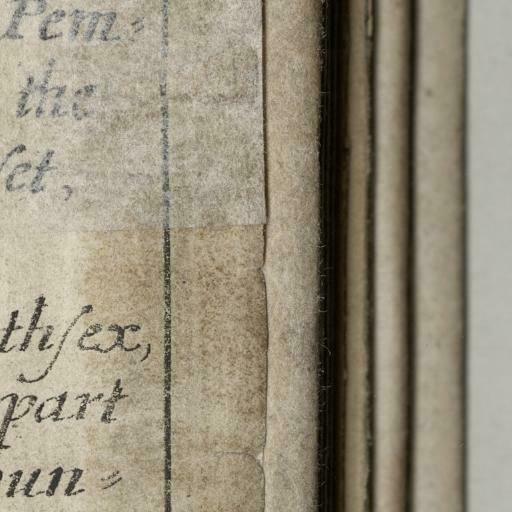 Pem⸗
the
ſet,
thſex,
part
oun⸗